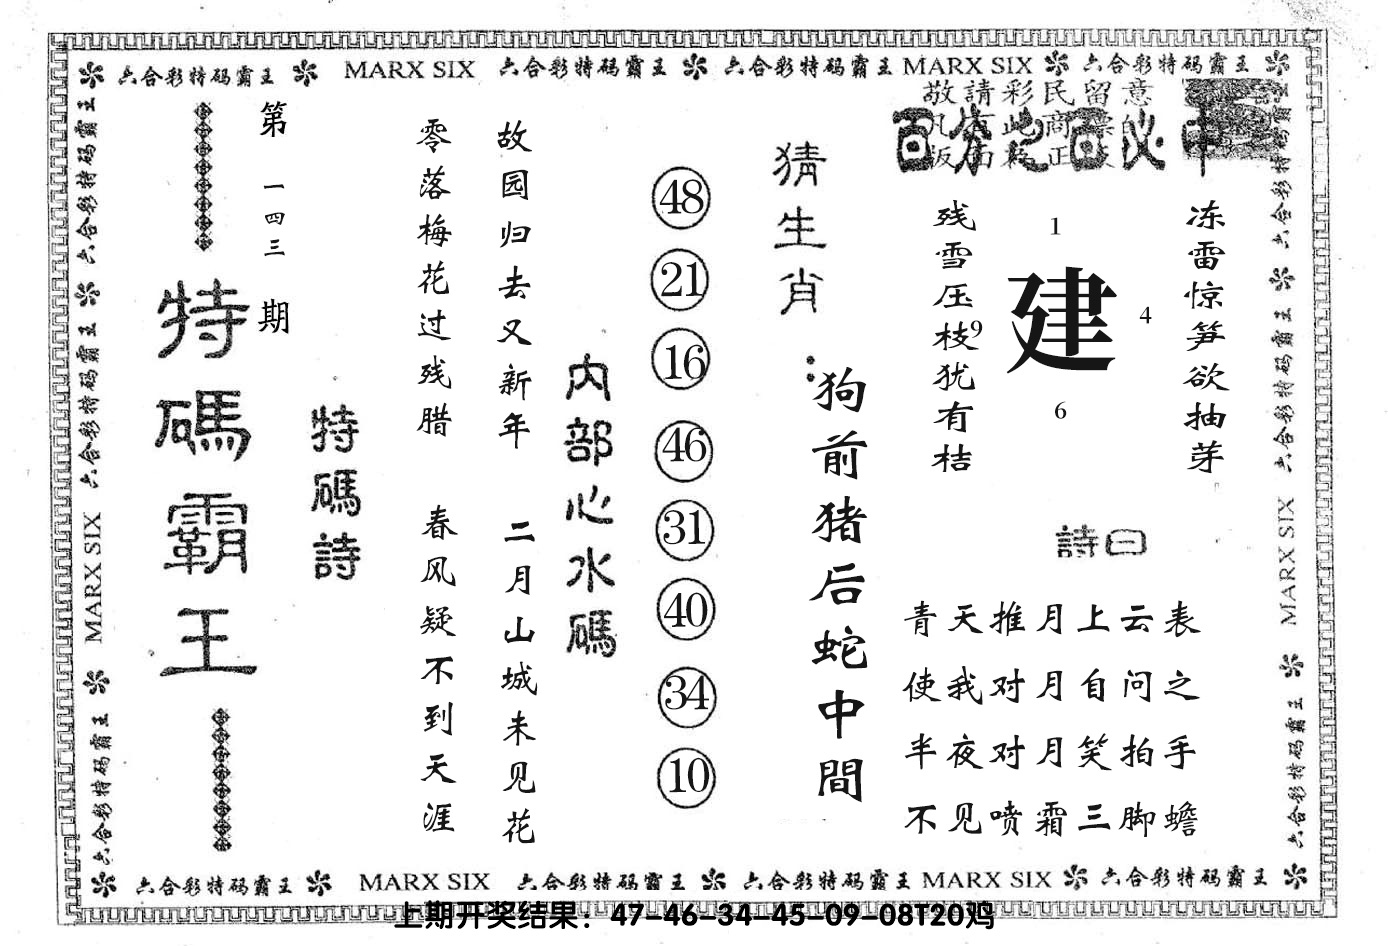 六合彩特码霸王 MARX SIX 六合彩特码霸王 六合彩特码霸王 MARX SIX 六合彩特码霸王
敬請彩民留意
百分之百必中
第一四三期
特碼霸王
特碼詩
零落梅花过残腊
春风疑不到天涯
故园归去又新年
二月山城未见花
内部心水碼
48
21
16
46
31
40
34
10
猜生肖:
狗前猪后蛇中間
冻雷惊笋欲抽芽
残雪压枝犹有桔
1
9
建
4
6
詩曰
青天推月上云表
使我对月自问之
半夜对月笑拍手
不见喷霜三脚蟾
六合彩特码霸王 六合彩特码霸王 MARX SIX 六合彩特码霸王
六合彩特码霸王 六合彩特码霸王 MARX SIX 六合彩特码霸王
六合彩特码霸王 MARX SIX 六合彩特码霸王 六合彩特码霸王 MARX SIX 六合彩特码霸王
上期开奖结果：47-46-34-45-09-08T20鸡